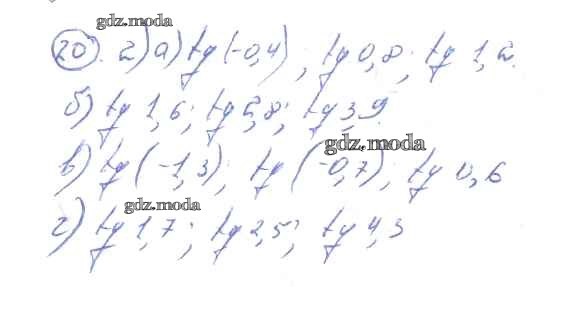 gdz.moda
20. 2) а) tg(-0,4); tg 0,8; tg 1,2.
б) tg 1,6; tg 5,8; tg 3,9.
gdz.moda
в) tg(-1,3); tg(-0,7); tg 0,6
gdz.moda
г) tg 1,7; tg 2,5; tg 4,3